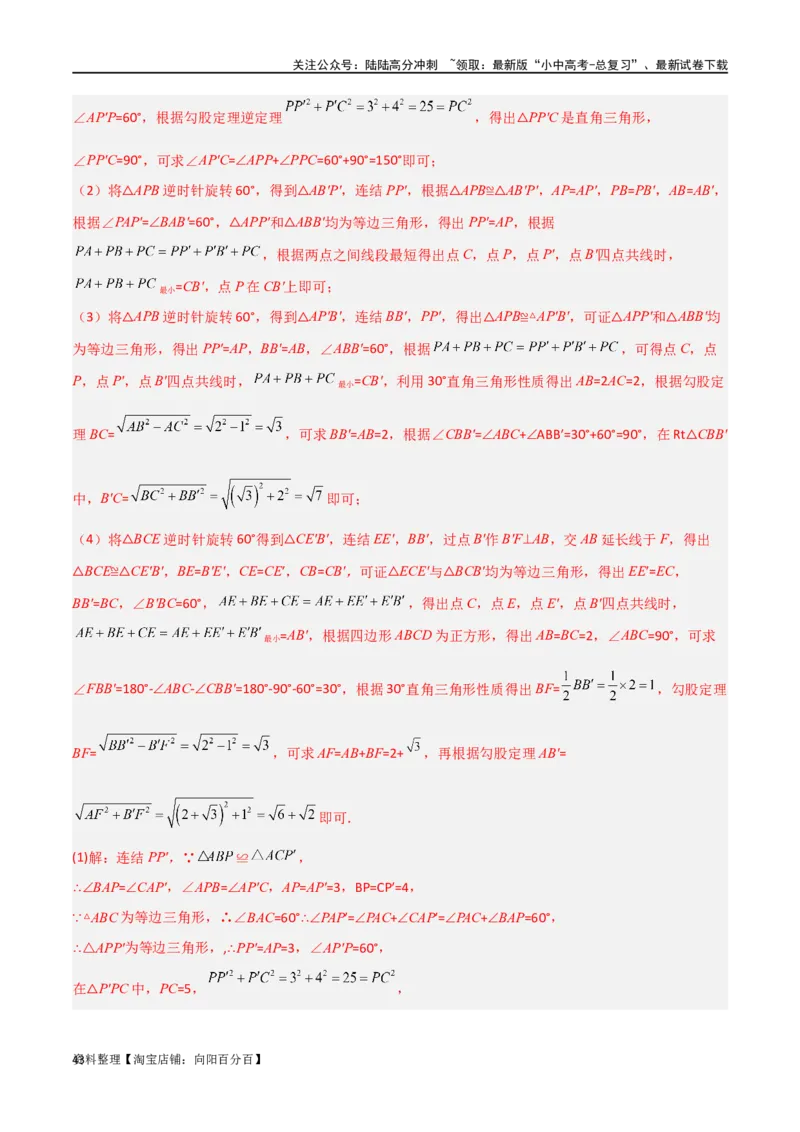 关注公众号：陆陆高分冲刺　~领取：最新版“小中高考-总复习”、最新试卷下载
∠AP′P=60°，根据勾股定理逆定理PP′²+P′C²=3²+4²=25=PC²，得出△PP′C是直角三角形，
∠PP′C=90°，可求∠AP′C=∠APP+∠PPC=60°+90°=150°即可；
（2）将△APB逆时针旋转60°，得到△AB′P′，连结PP′，根据△APB≌△AB′P′，AP=AP′，PB=PB′，AB=AB′，
根据∠PAP′=∠BAB′=60°，△APP′和△ABB′均为等边三角形，得出PP′=AP，根据
PA+PB+PC=PP′+P′B′+PC，根据两点之间线段最短得出点C，点P，点P′，点B′四点共线时，
PA+PB+PC最小=CB′，点P在CB′上即可；
（3）将△APB逆时针旋转60°，得到△AP′B′，连结BB′，PP′，得出△APB≌△AP′B′，可证△APP′和△ABB′均
为等边三角形，得出PP′=AP，BB′=AB，∠ABB′=60°，根据PA+PB+PC=PP′+P′B′+PC，可得点C，点
P，点P′，点B′四点共线时，PA+PB+PC最小=CB′，利用30°直角三角形性质得出AB=2AC=2，根据勾股定
理BC=√(AB²−AC²)=√(2²−1²)=√3，可求BB′=AB=2，根据∠CBB′=∠ABC+∠ABB′=30°+60°=90°，在Rt△CBB′
中，B′C=√(BC²+BB′²)=√((√3)²+2²)=√7即可；
（4）将△BCE逆时针旋转60°得到△CE′B′，连结EE′，BB′，过点B′作B′F⊥AB，交AB延长线于F，得出
△BCE≌△CE′B′，BE=B′E′，CE=CE′，CB=CB′，可证△ECE′与△BCB′均为等边三角形，得出EE′=EC，
BB′=BC，∠B′BC=60°，AE+BE+CE=AE+EE′+E′B′，得出点C，点E，点E′，点B′四点共线时，
AE+BE+CE=AE+EE′+E′B′最小=AB′，根据四边形ABCD为正方形，得出AB=BC=2，∠ABC=90°，可求
∠FBB′=180°-∠ABC-∠CBB′=180°-90°-60°=30°，根据30°直角三角形性质得出BF=1/2BB′=1/2×2=1，勾股定理
BF=√(BB′²−B′F²)=√(2²−1²)=√3，可求AF=AB+BF=2+√3，再根据勾股定理AB′=
√(AF²+B′F²)=√((2+√3)²+1²)=√6+√2即可．
(1)解：连结PP′，∵△ABP≌△ACP′，
∴∠BAP=∠CAP′，∠APB=∠AP′C，AP=AP′=3，BP=CP′=4，
∵△ABC为等边三角形，∴∠BAC=60°∴∠PAP′=∠PAC+∠CAP′=∠PAC+∠BAP=60°，
∴△APP′为等边三角形，,∴PP′=AP=3，∠AP′P=60°，
在△P′PC中，PC=5，PP′²+P′C²=3²+4²=25=PC²，
43
资料整理【淘宝店铺：向阳百分百】